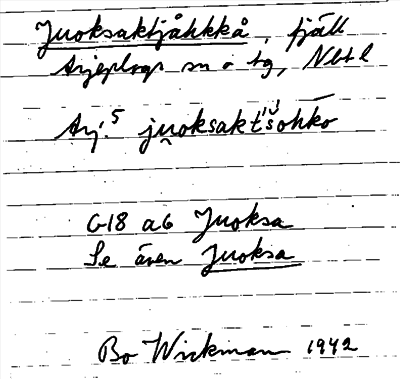 Juoksaktjåhkkå, fjäll
Arjeplogs sn o tg, Nbtl
Arj.⁵ ju̯oksaktšohko
G18 a6 Juoksa
Se även Juoksa
Bo Wickman 1942